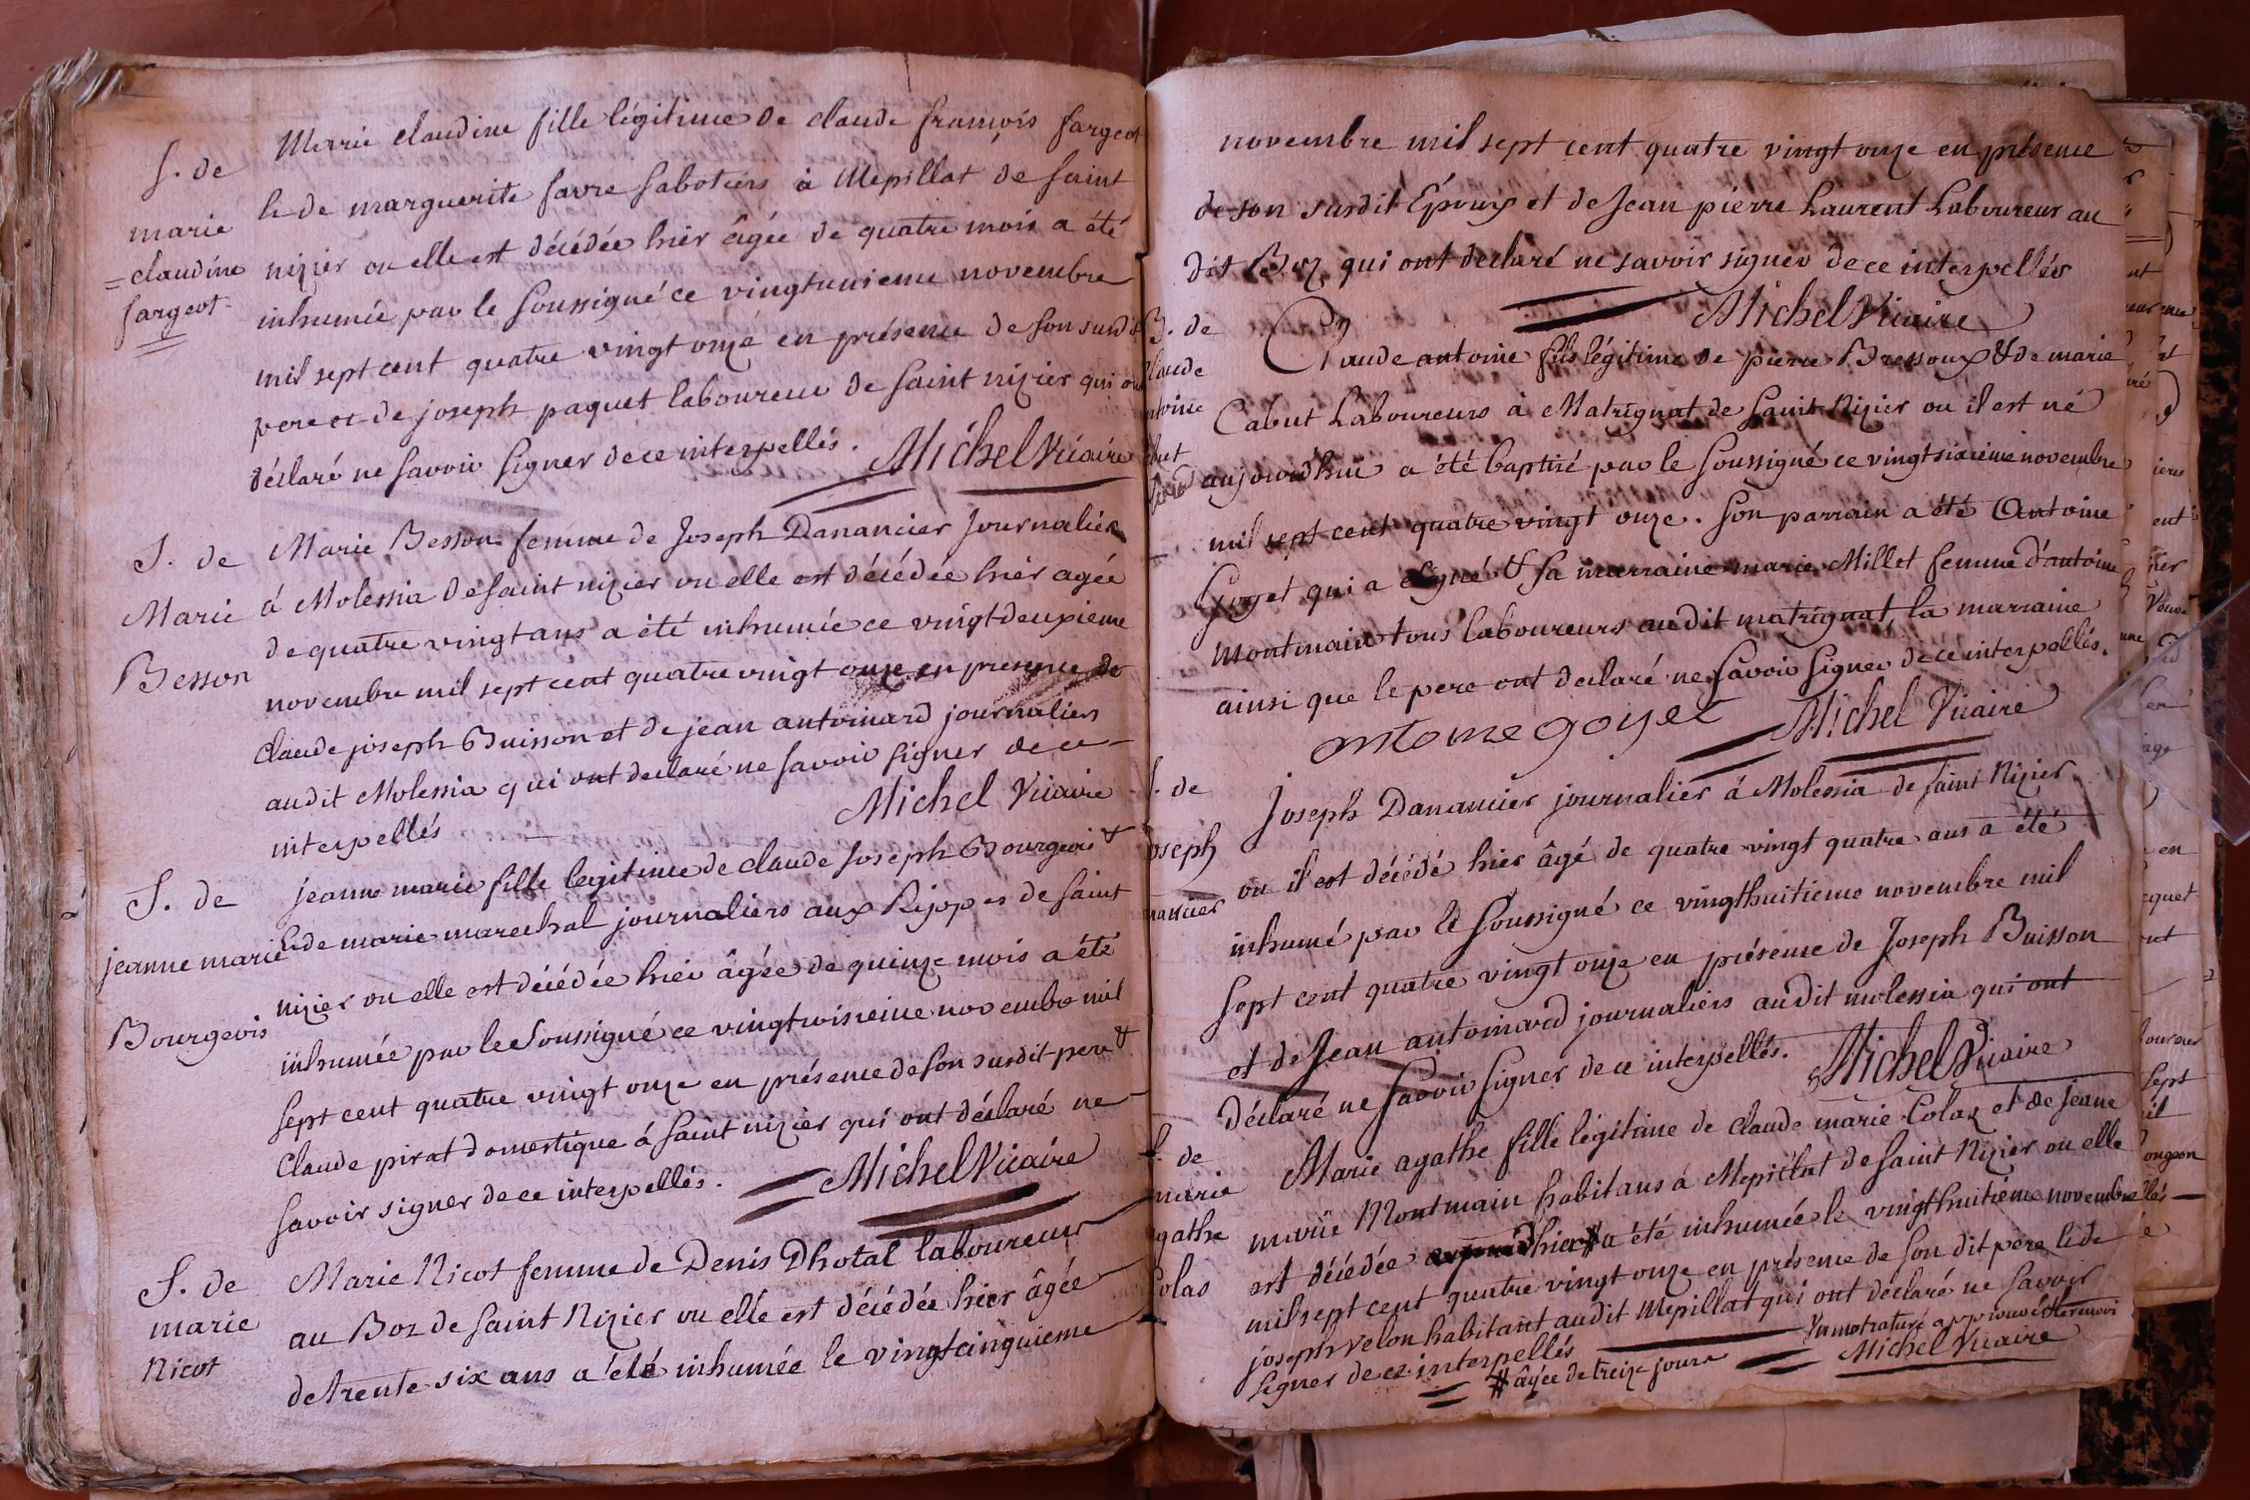 S. de
marie
=claudine
fargeot
Marie claudine fille légitime de claude françois fargeot
& de marguerite favre sabotiers à Mepillat de saint
nizier ou elle est décédée hier âgée de quatre mois a été
inhumée par le soussigné ce vingtunieme novembre
mil sept cent quatre vingt onze en présence de son susdit
pere et de joseph paquet laboureur de saint nizier qui ont
déclaré ne savoir signer de ce interpellés. Michel Vicaire
S. de
Marie
Besson
Marie Besson femme de Joseph Danancier Journalier
á Molessia de saint nizier ou elle est décédée hier agée
de quatre vingt ans a été inhumée ce vingtdeuxieme
novembre mil sept cent quatre vingt onze en presence de
claude joseph Buisson et de jean antoinard journaliers
audit Molessia qui ont declaré ne savoir signer de ce
interpellés
Michel Vicaire
S. de
jeanne marie
Bourgeois
jeanne marie fille legitime de claude Joseph Bourgeois &
& de marie marechal journaliers aux Rijoppes de saint
nizier ou elle est décédée hier âgée de quinze mois a été
inhumée par le soussigné ce vingtroisieme novembre mil
sept cent quatre vingt onze en présence de son susdit pere &
claude pirat domestique á saint nizier qui ont déclaré ne
savoir signer de ce interpellés. Michel Vicaire
S. de
marie
Nicot
Marie Nicot femme de Denis Dhotal laboureur
au Boz de saint Nizier ou elle est décédée hier âgée
de trente six ans a été inhumée le vingtcinquieme
novembre mil sept cent quatre vingt onze en présence
de son susdit Epoux et de Jean pierre Laurent Laboureur au
dit Boz qui ont declaré ne savoir signer de ce interpellés
Michel Vicaire
B. de
claude
antoine
Claude antoine fils légitime de pierre Bressoux & de marie
Cabut Laboureurs à Matrignat de saint Nizier ou il est né
aujourdhui a été baptisé par le soussigné ce vingtsixieme novembre
mil sept cent quatre vingt onze. Son parrain a été Antoine
Goyet qui a signé & sa marraine marie Millet femme d'antoine
Montmain tous laboureurs audit matrignat, la marraine
ainsi que le pere ont declaré ne savoir signer de ce interpellés.
antoine goyet Michel Vicaire
S. de
joseph
Danancier
Joseph Danancier journalier á Molessia de saint Nizier
ou il est décédé hier âgé de quatre vingt quatre ans a été
inhumé par le soussigné ce vingthuitieme novembre mil
sept cent quatre vingt onze en présence de Joseph Buisson
et de Jean antoinard journaliers audit molessia qui ont
déclaré ne savoir signer de ce interpellés. Michel Vicaire
S. de
marie
agathe
Colas
Marie agathe fille légitime de claude marie Colas et de Jeane
marie Montmain habitans á Mepillat de saint Nizier ou elle
est décédée hier # a été inhumée le vingthuitieme novembre
mil sept cent quatre vingt onze en présence de son dit pere & de
joseph velon habitant audit Mepillat qui ont déclaré ne savoir
signer de ce interpellés
un mot raturé approuvé
# âgée de treize jours Michel Vicaire